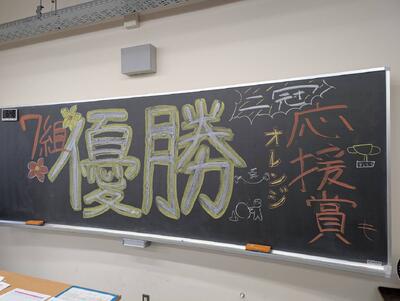 7組
優勝
二冠
オレンジ
応援賞も